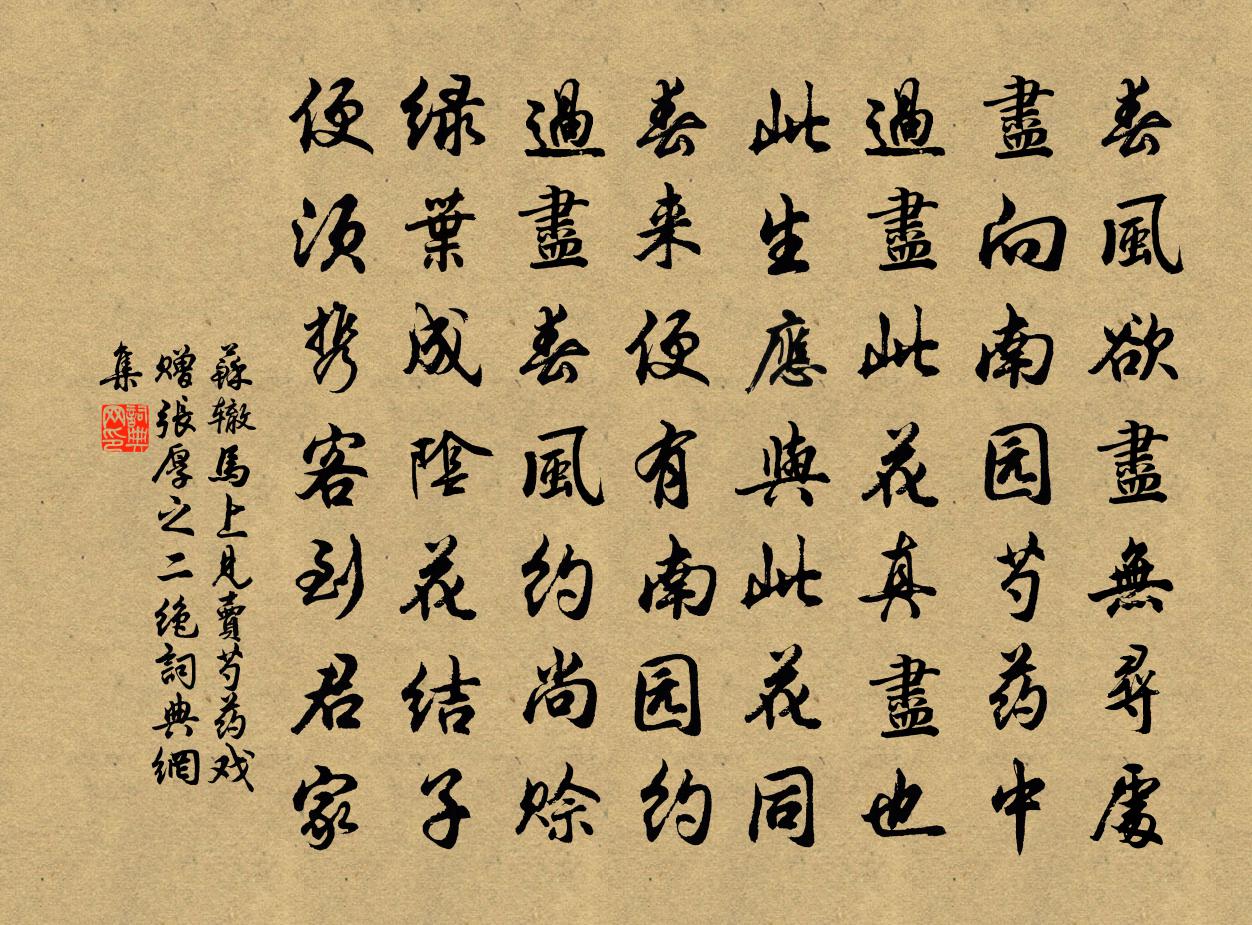 春風欲盡無尋處
盡向南园芍药中
過盡此花真盡也
此生應與此花同
春来便有南园约
過盡春風约尚赊
绿葉成陰花结子
便须携客到君家
蘇辙馬上見賣芍药戏
赠張厚之二絶詞典網
集
詞典网印